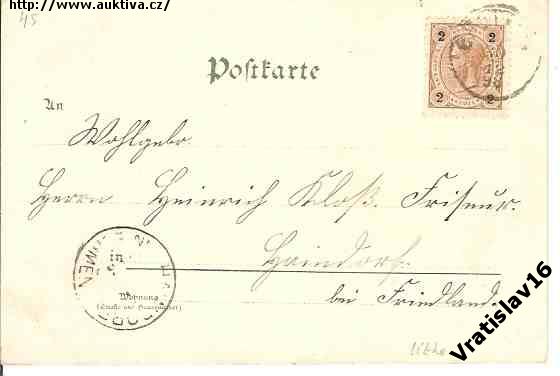 http://www.auktiva.cz/
45
Postkarte
2 2
2 2
An
Wohlgebr
Herrn Heinrich Kloß, Friseur.
Haindorf
bei Friedland.
Wohnung
(Straße und Hausnummer)
Litho
Vratislav16